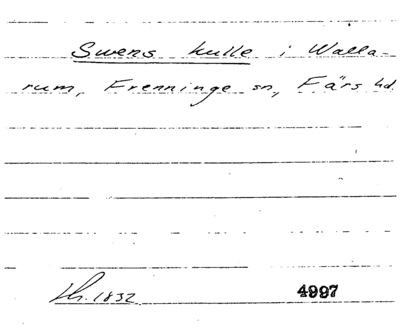 Swens kulle i Walla-
rum, Frenninge sn, Färs hd
Lh. 1832 4997